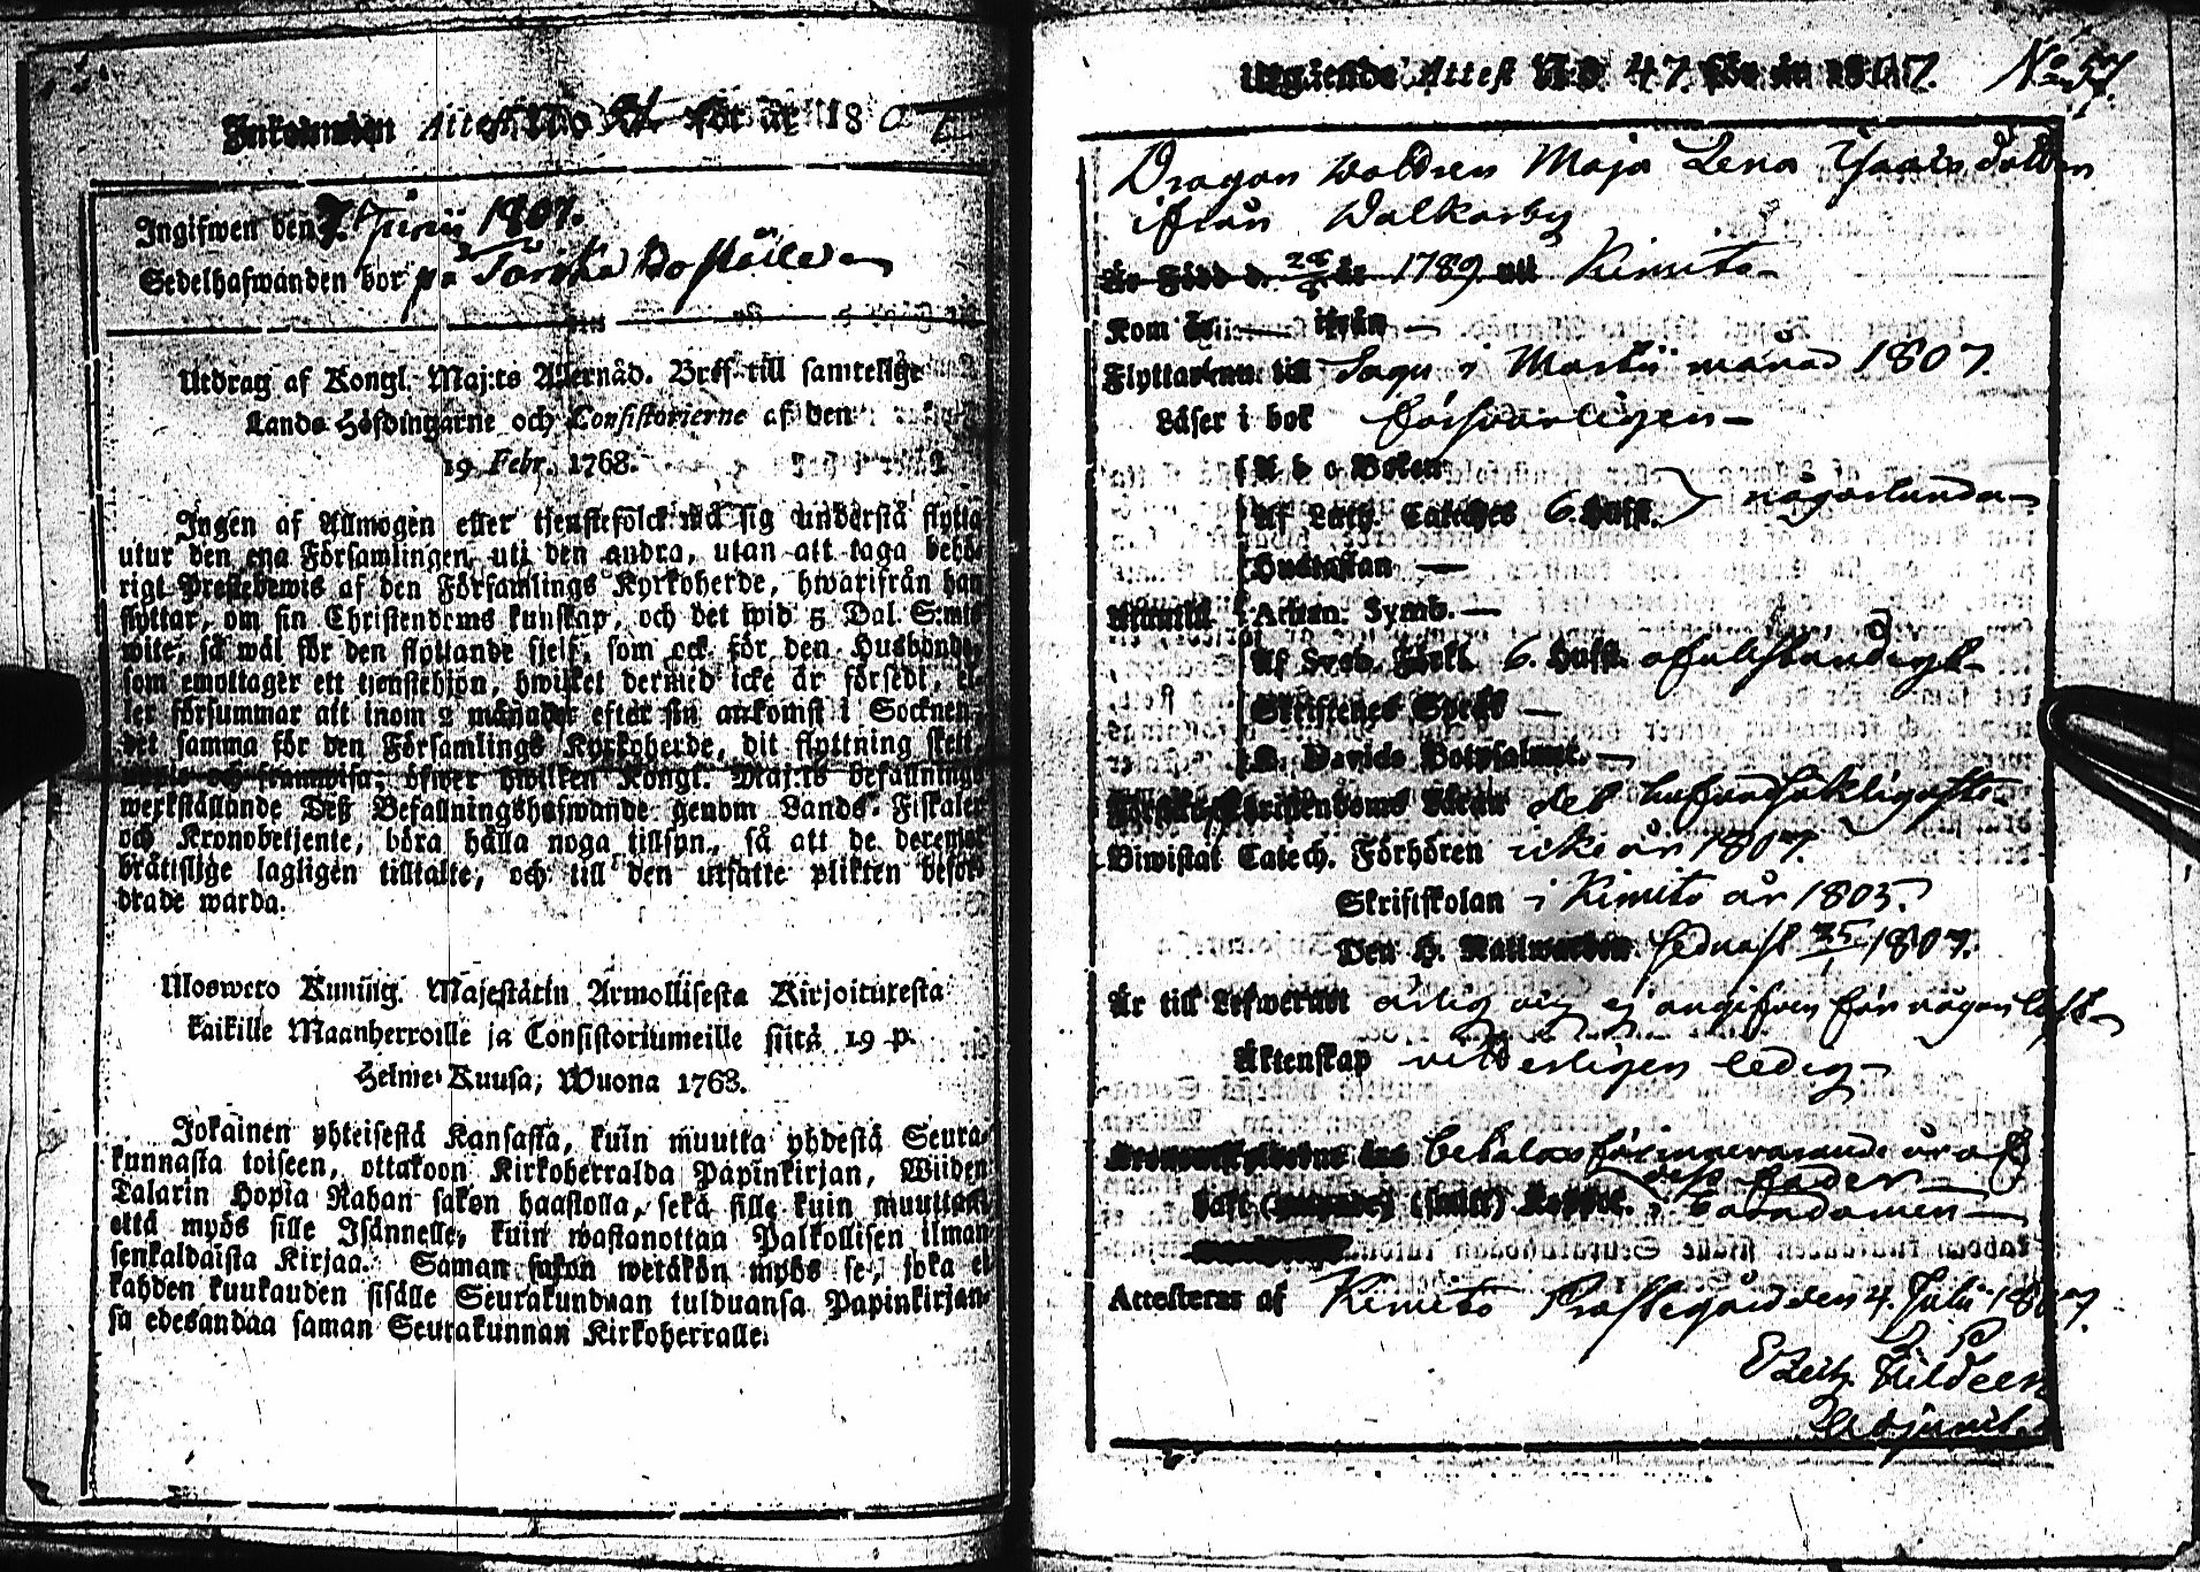 Inkommen Attest N:o 51. för år 180
Ingifwen den 7. Junii 1807.
Sedelhafwanden bor på Torska Bostället
Utdrag af Kongl. Maj:ts Allernåd. Bref till samtelige
Lands Höfdingarne och Consistorierne af den
19 Febr. 1768.
Ingen af Allmogen eller tjenstefolck må sig understå flytta
utur den ena Församlingen uti den andra, utan att taga behö-
rigt Prestebewis af den Församlings Kyrkoherde, hwarifrån han
flyttar, om sin Christendoms kunskap, och det wid 5 Dal. S:mts
wite, så wäl för den flyttande sjelf, som ock för den Husbonde,
som emottager ett tjenstehjon, hwilket dermed icke är försedt, el-
ler försummar att inom 2 månader efter sin ankomst i Socknen,
det samma för den Församlings Kyrkoherde, dit flyttning skett,
upte och framwisa; öfwer hwilken Kongl. Maj:ts befallnings
werkställande Deß Befallningshafwande genom Lands-Fiskaler
och Kronobetjente, böra hålla noga tillsyn, så att de deremot
bråttslige lagligen tilltalte, och till den utsatte plikten befor-
drade warda.
Ulosweto Kuning. Majestätin Armollisesta Kirjoituxesta
kaikille Maanherroille ja Consistoriumeille siitä 19 p.
Helme-Kuusa, Wuona 1768.
Jokainen yhteisestä Kansasta, kuin muutta yhdestä Seura-
kunnasta toiseen, ottakoon Kirkoherralda Papinkirjan, Wiiden
Talarin Hopia Rahan sakon haastolla, sekä sille kuin muuttaa,
että myös sille Isännelle, kuin wastanottaa Palkollisen ilman
senkaldaista Kirjaa. Saman sakon wetäkön myös se, joka ei
kahden kuukauden sisälle Seurakundaan tulduansa Papinkirjan-
sa edesandaa saman Seurakunnan Kirkoherralle.
Utgående Attest N:o 47. för år 1807. No 51.
Dragon Maja Lena
ifrån Walkarby
Är Född d. år 1789 uti Kimito
Kom hit ifrån
Flyttar nu till Sagu i Martii månad 1807.
Läser i bok försvarligen
A b c Boken
Af Luth. Cateches 6. Hufst. någorlunda
Hustaflan
Utantill Athan. Symb.
Af Sveb. Förkl. 6. Hufst. ofullständigt
Skriftenes Språk
K. Davids Botpsalmr.
Förstår Christendoms Läran det hufvudsakligaste
Biwistat Catech. Förhören icke år 1807.
Skriftskolan i Kimito år 1803.
Den H. Nattwarden sednast 25/1 1807.
Är till Lefwernet ärlig och ej angifven för någon last
Äktenskap vitterligen ledig
betalas för innevarande år af
dess fader
haft (smitt) Koppor. i barndomen
Attesteras af Kimito Prästegård den 4. Julii 1807.